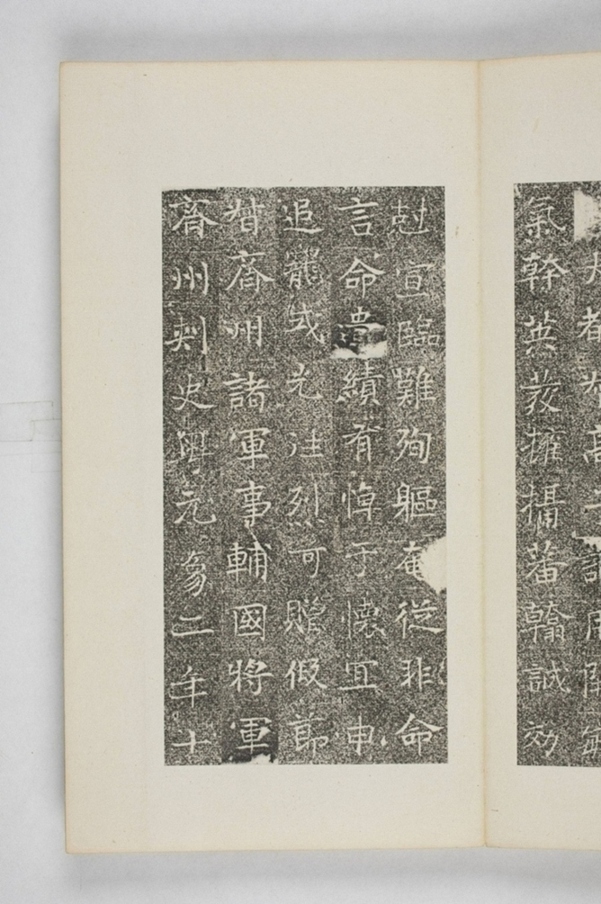 都督高
氣幹英發擁攝蕃翰誠効
尅宣臨難殉軀奄從非命
言命遺績有悼于懷宜申
追寵式光往烈可贈假節
督齊州諸軍事輔國將軍
齊州刺史粵元象二年十